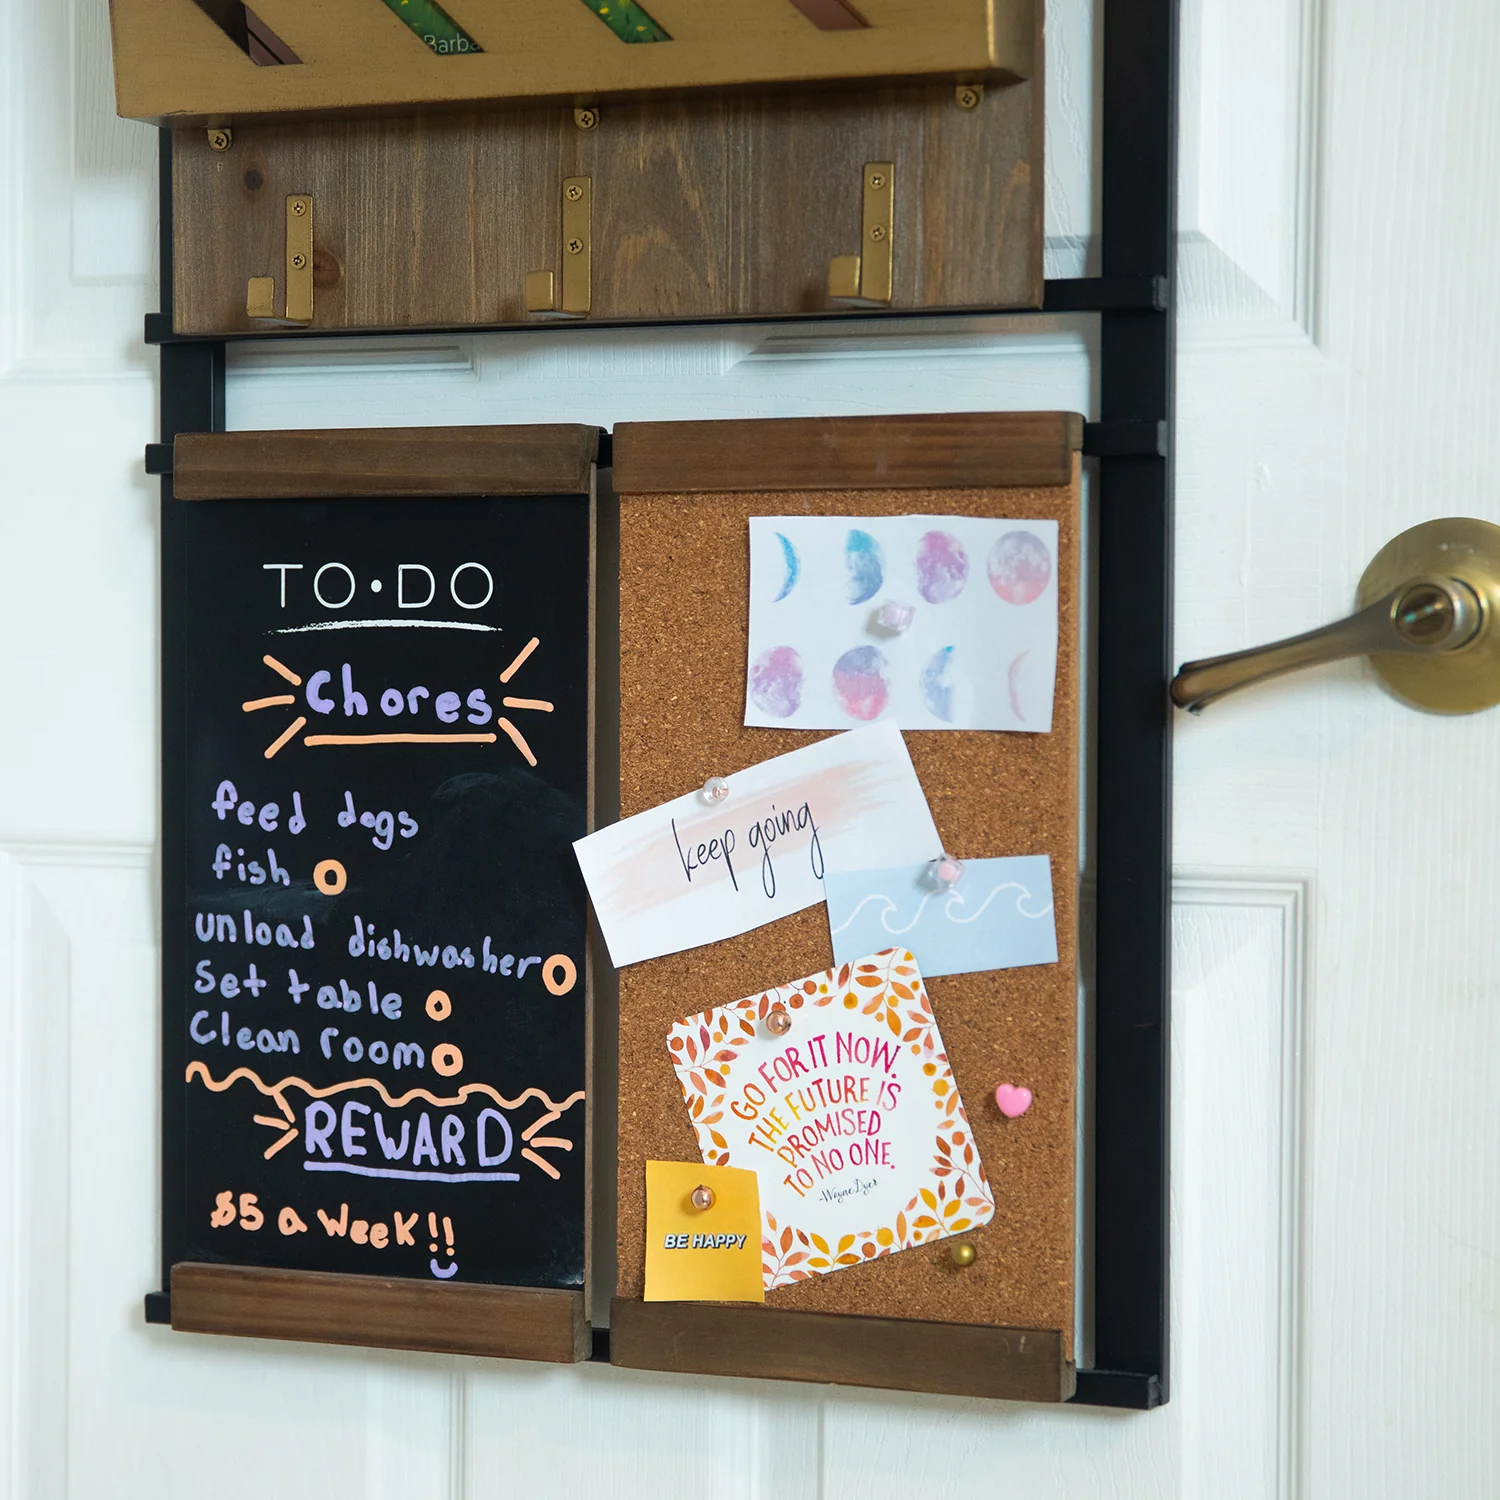 Barba
TO•DO
Chores
feed dogs
fish
unload dishwasher
Set table
Clean room
REWARD
$5 a week!!
keep going
GO FOR IT NOW.
THE FUTURE IS
PROMISED
TO NO ONE.
-Wayne Dyer
BE HAPPY